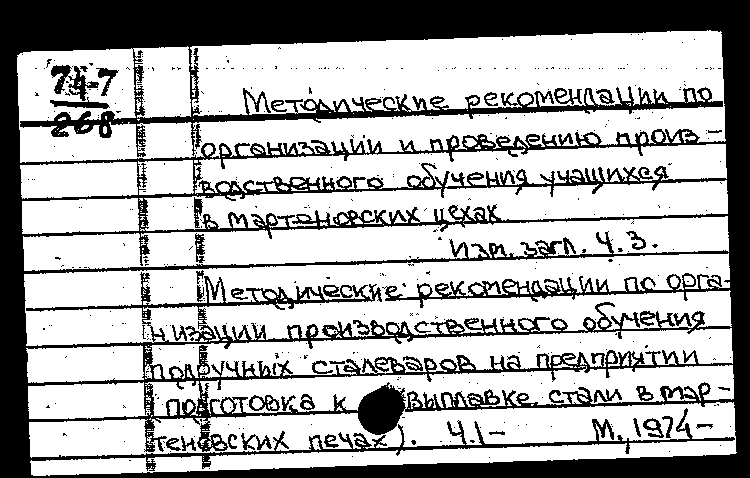 74-7
268
Методические рекомендации по
организации и проведению произ-
водственного обучения учащихся
в мартеновских цехах
Изм. загл. ч. 3.
Методические рекомендации по орга-
низации производственного обучения
подручных сталеваров на предприятии
(подготовка к выплавке стали в мар-
теновских печах). Ч.1- М., 1974-